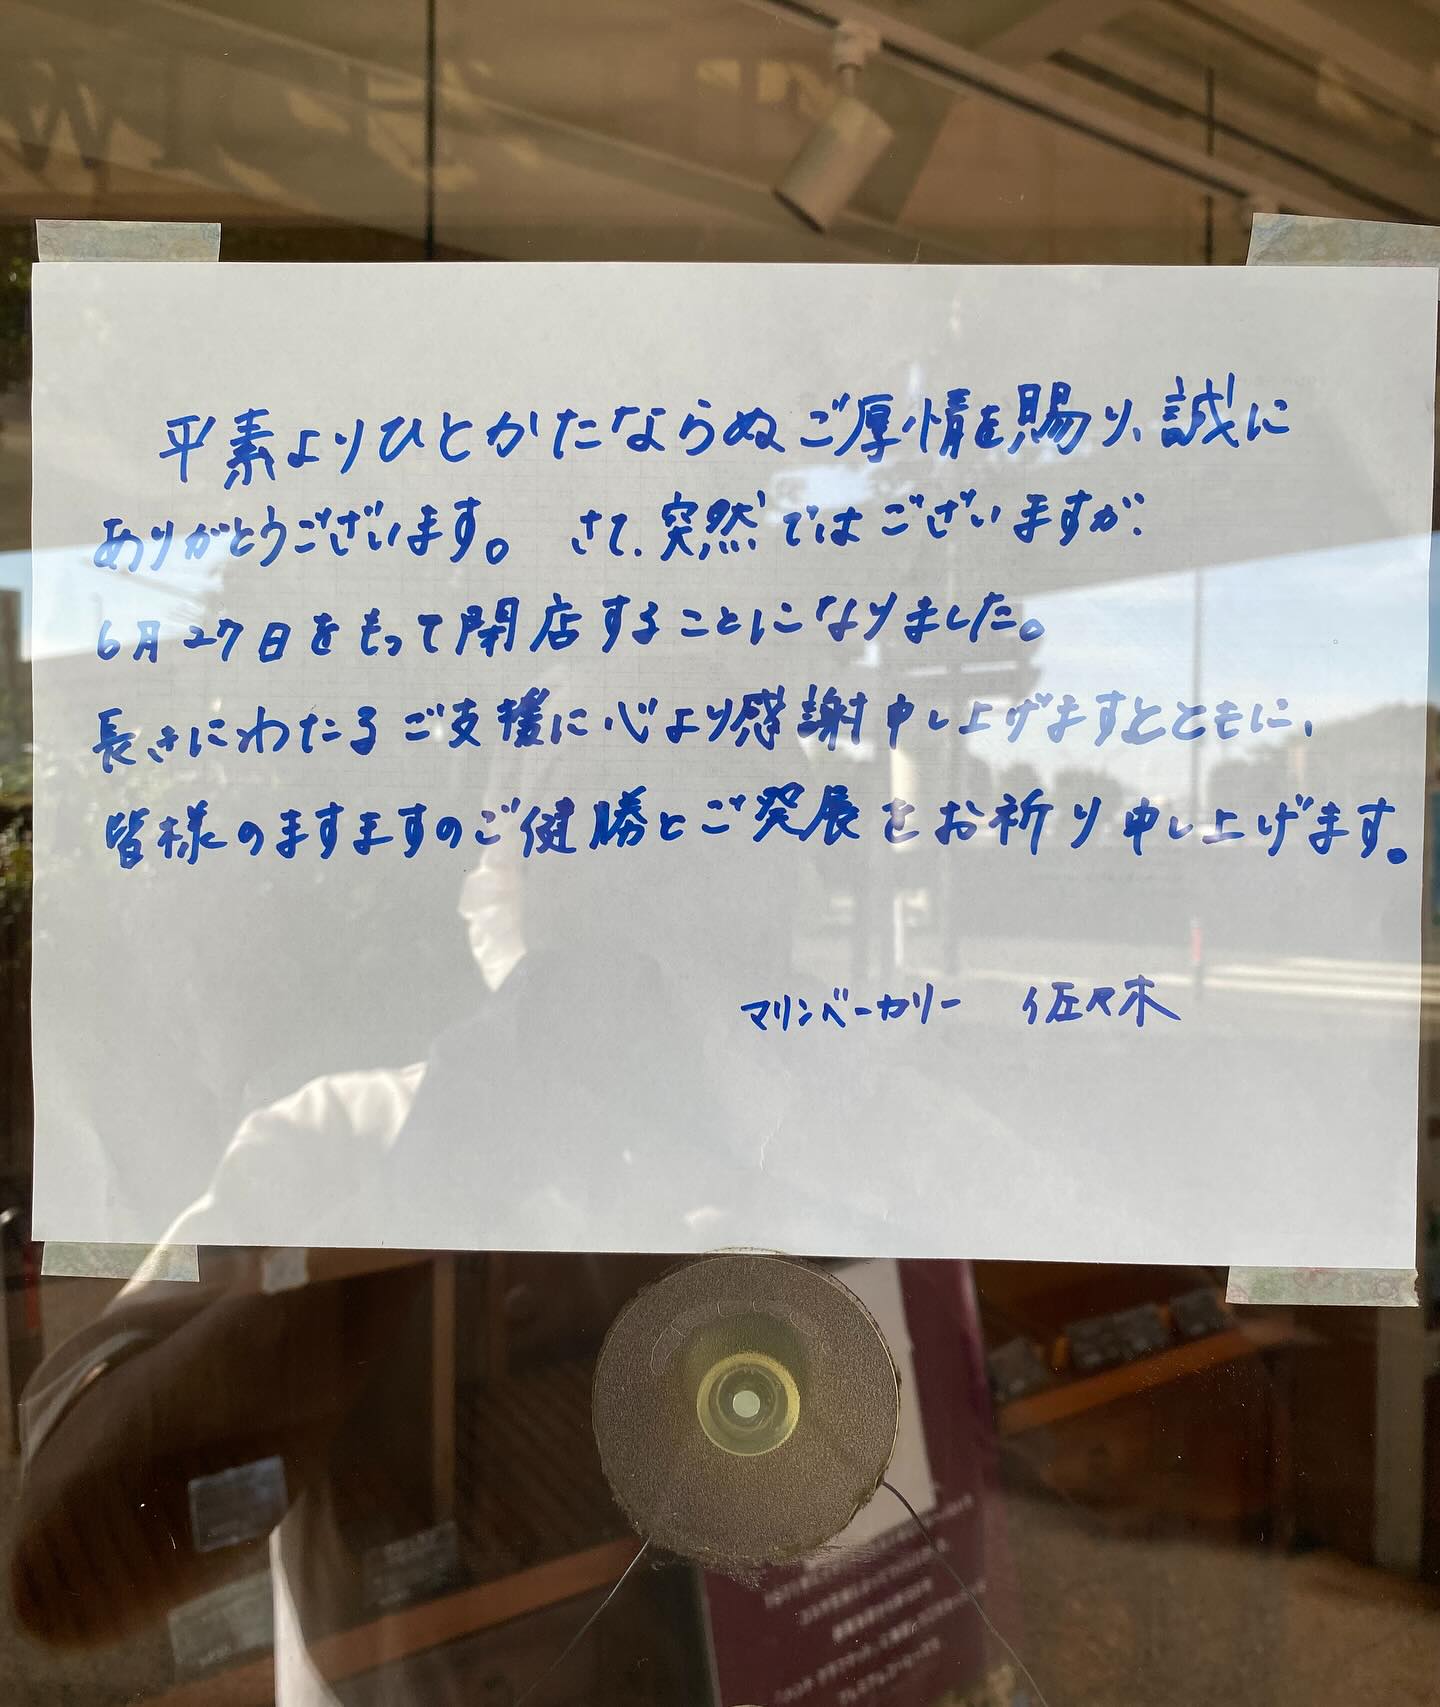 平素よりひとかたならぬご厚情を賜り、誠に
ありがとうございます。 さて、突然ではございますが、
6月27日をもって閉店することになりました。
長きにわたるご支援に心より感謝申し上げますとともに、
皆様のますますのご健勝とご発展をお祈り申し上げます。
マリンベーカリー 佐々木